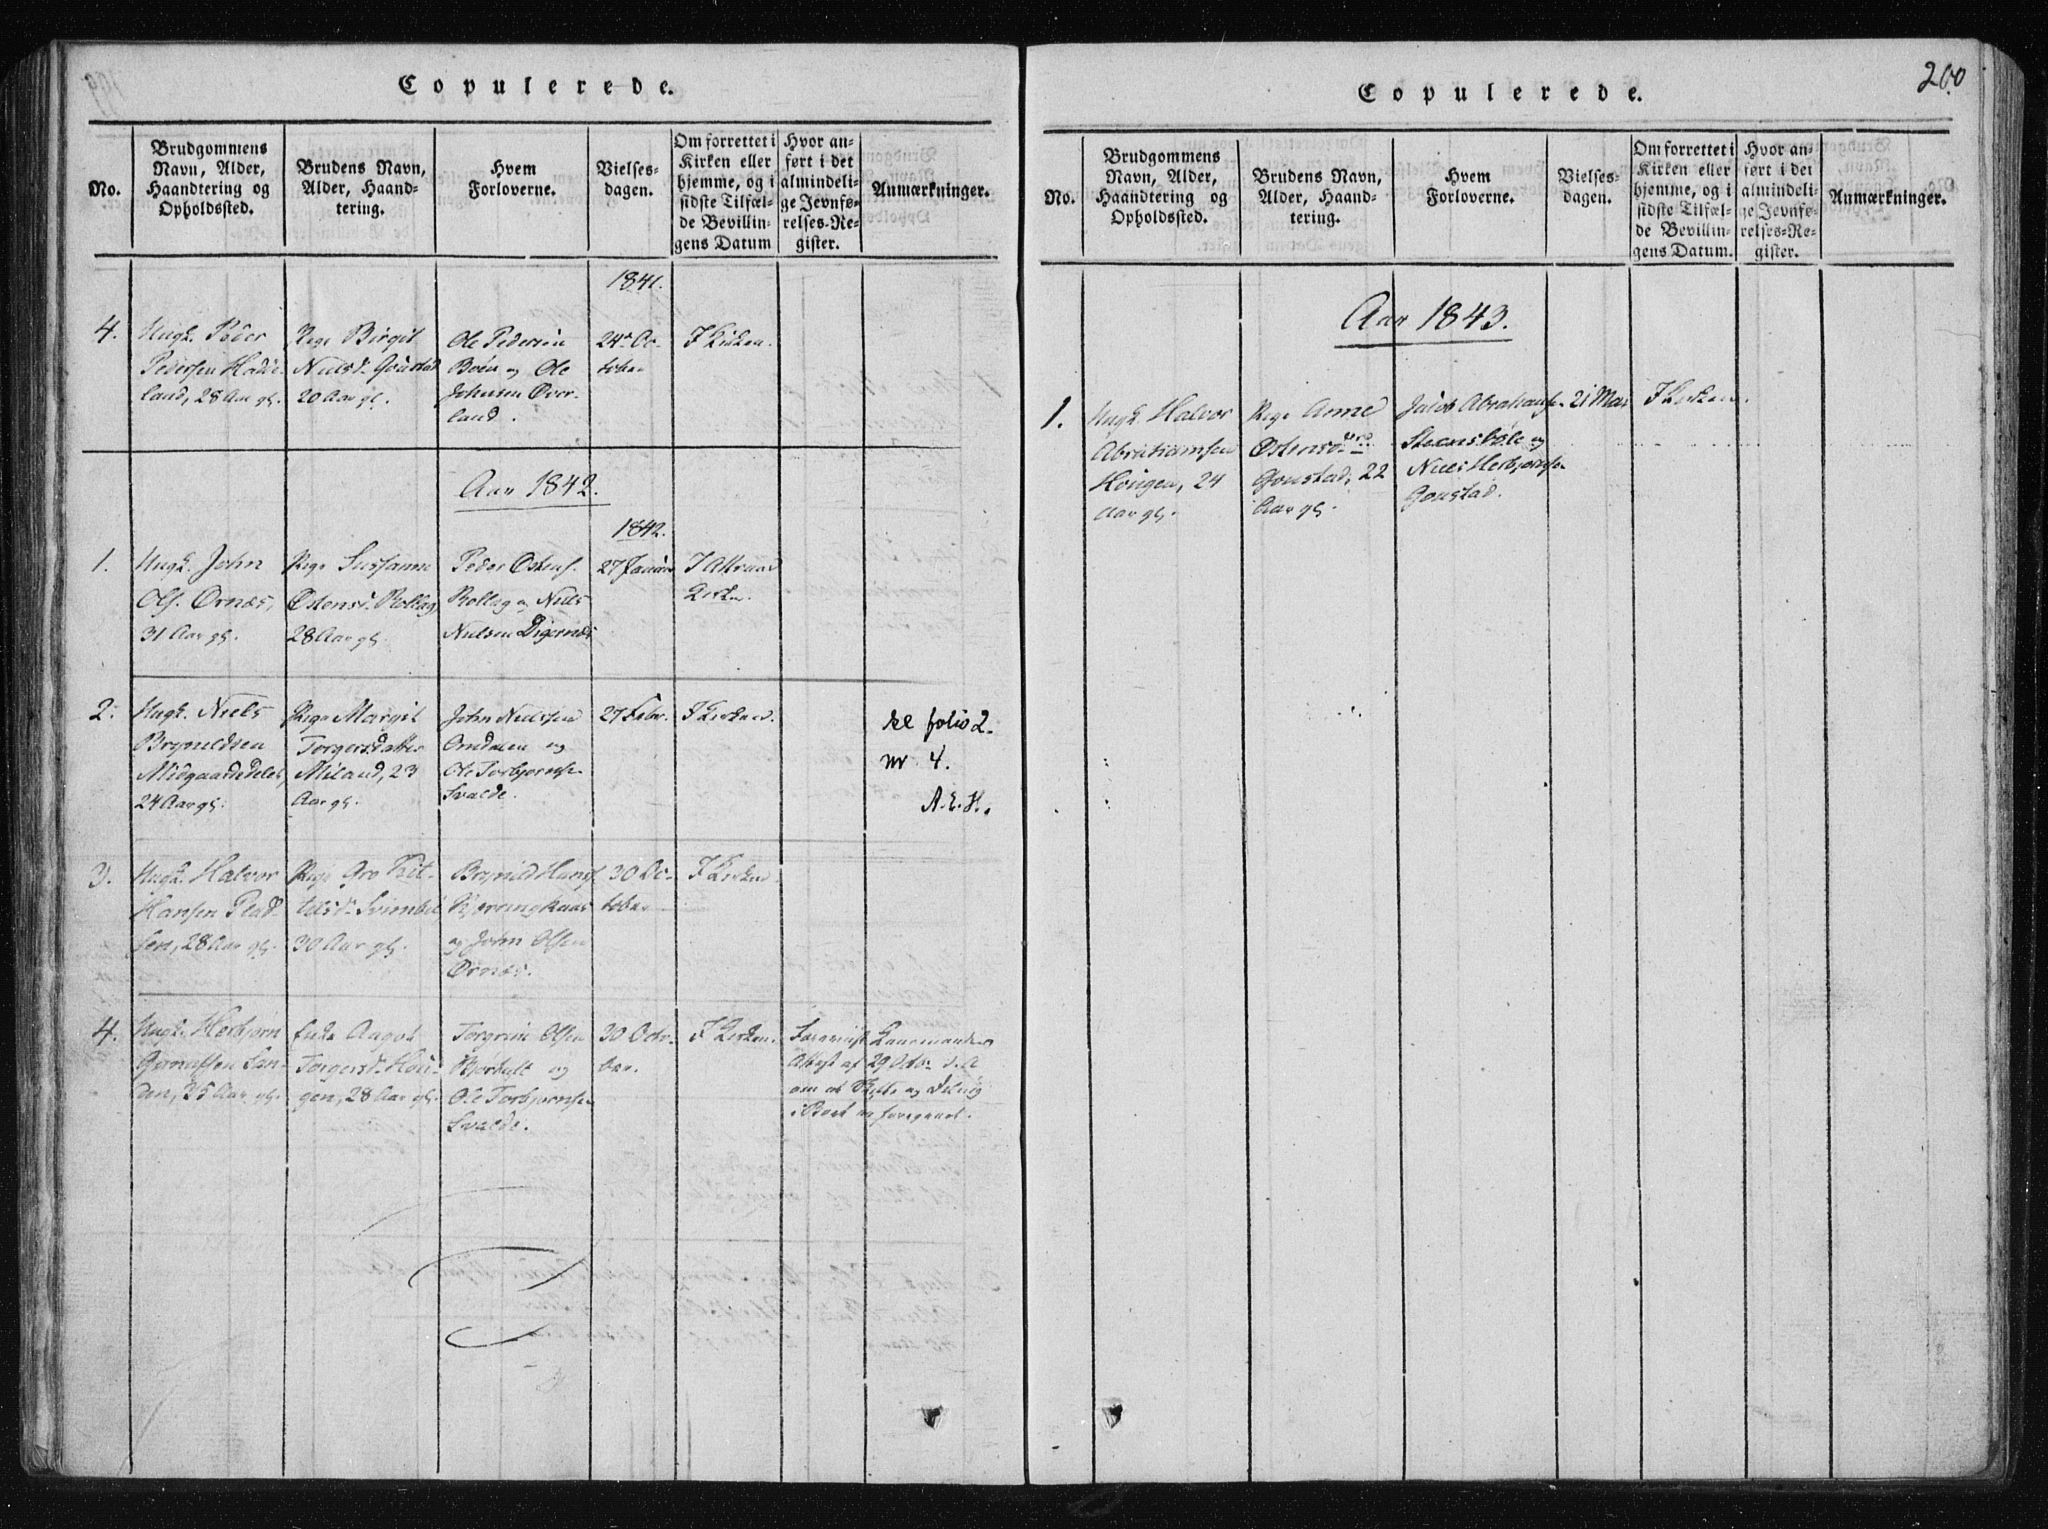 Copulerede.
No.
Brudgommens
Navn, Alder,
Haandtering og
Opholdssted.
Brudens Navn,
Alder, Haand-
tering.
Hvem
Forloverne.
Vielses-
dagen.
Om forrettet i
Kirken eller
hjemme, og i
sidste Tilfæl-
de Bevillin-
gens Datum
Hvor an-
ført i det
almindeli-
ge Jevnfø-
relses-Re-
gister.
Anmærkninger.
1841.
4.
Ungk. Peder
Pedersen Hadde-
land, 28 Aar gl.
Pige Birgit
Nielsd. Goustad
20 Aar gl.
Ole Pedersen
Böen og Ole
Johnsen Over-
land.
24de Oc-
tober
I Kirken.
Aar 1842.
1842.
1.
Ungk. John
Ols. Ornæs,
31 Aar gl.
Pige Susanne
Østensd. Rollag,
28 Aar gl.
Peder Østens.
Rollag og Niels
Nielsen Digernæs
27 Januar
I Attraae
Kirke.
2.
Ungk. Niels
Bryneldsen
Midgaarde Dele,
24 Aar gl.
Pige Margit
Torgersdatter
Miland, 23
Aar gl.
John Nielssen
Omdalen og
Ole Torbjørnse
Svalde.
27 Febr.
I Kirken.
se folio 2.
nr 4.
A.E.H.
3.
Ungk. Halvor
Hansen Plad-
sen, 28 Aar gl.
Pige Gro Kit-
telsd. Svimbil
30 Aar gl.
Brynild Hans.
Kjerringkaas
og John Olsen
Ornæs.
30 Oc-
tober
I Kirken
4.
Ungk. Herbjørn
Gunnulfsen San-
den, 25 Aar gl.
Enke Aagot
Torgersd. Hou-
gen, 28 Aar gl.
Torgrim Olsen
Bjørtuft og
Ole Torbjørnse
Svalde.
30 Octo-
ber.
I Kirken.
Foreviist Lensmandens
Attest af 29 Octbr d. A
om at Skifte og Deling
i Boet er foregaaet.
Copulerede.
200
No.
Brudgommens
Navn, Alder,
Haandtering og
Opholdssted.
Brudens Navn,
Alder, Haand-
tering.
Hvem
Forloverne.
Vielses-
dagen.
Om forrettet i
Kirken eller
hjemme, og i
sidste Tilfæl-
de Bevillin-
gens Datum.
Hvor an-
ført i det
almindeli-
ge Jevnfø-
relses-Re-
gister.
Anmærkninger.
Aar 1843.
1.
Ungk. Halvor
Abrahamsen
Hougen, 24
Aar gl.
Pige Anne
Østensd.
Goustad, 22
Aar gl.
Jacob Abrahamse
Steensböle og
Niels Herbjørnse
Goustad.
21 Mai
I Kirken.